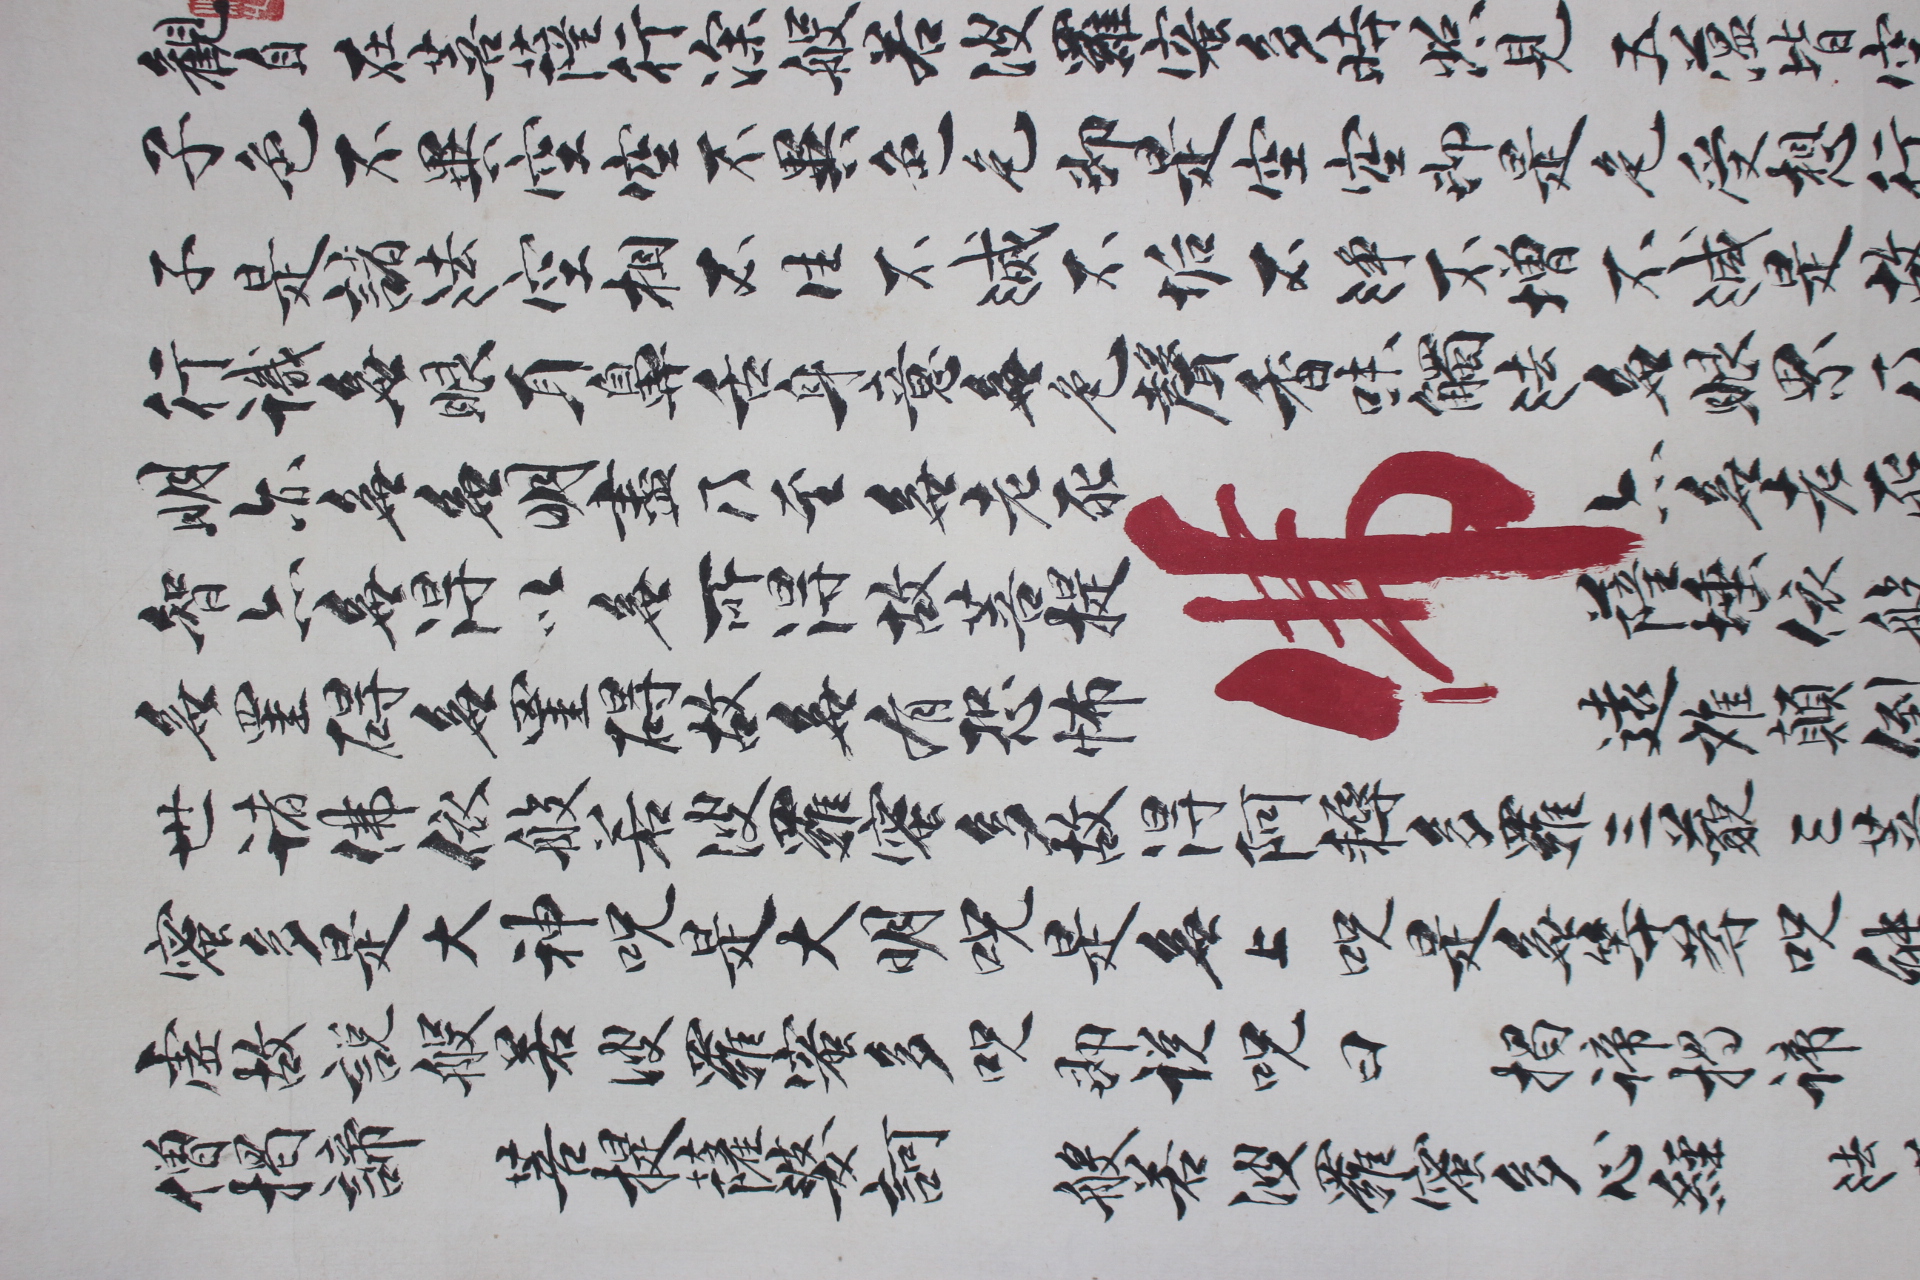 觀自在菩薩行深般若波羅蜜多時照見五蘊皆空
子色不異空空不異色色即是空空即是色受想行
子是諸法空相不生不滅不垢不淨不增不減是故
行識無眼耳鼻舌身意無色聲香味觸法無眼界乃
明亦無無明盡乃至無老死亦無老死
智亦無得以無所得故菩提薩埵依般
無罣碍無罣碍故無有恐怖遠離顛倒
佛
世诸佛依般若波羅蜜多故得阿耨多羅三藐三菩
蜜多是大神呪是大明呪是無上呪是無等等呪能
虛故説般若波羅蜜多呪即说呪曰 揭谛揭谛
僧揭諦 菩提薩婆訶 般若波羅蜜多心經 法